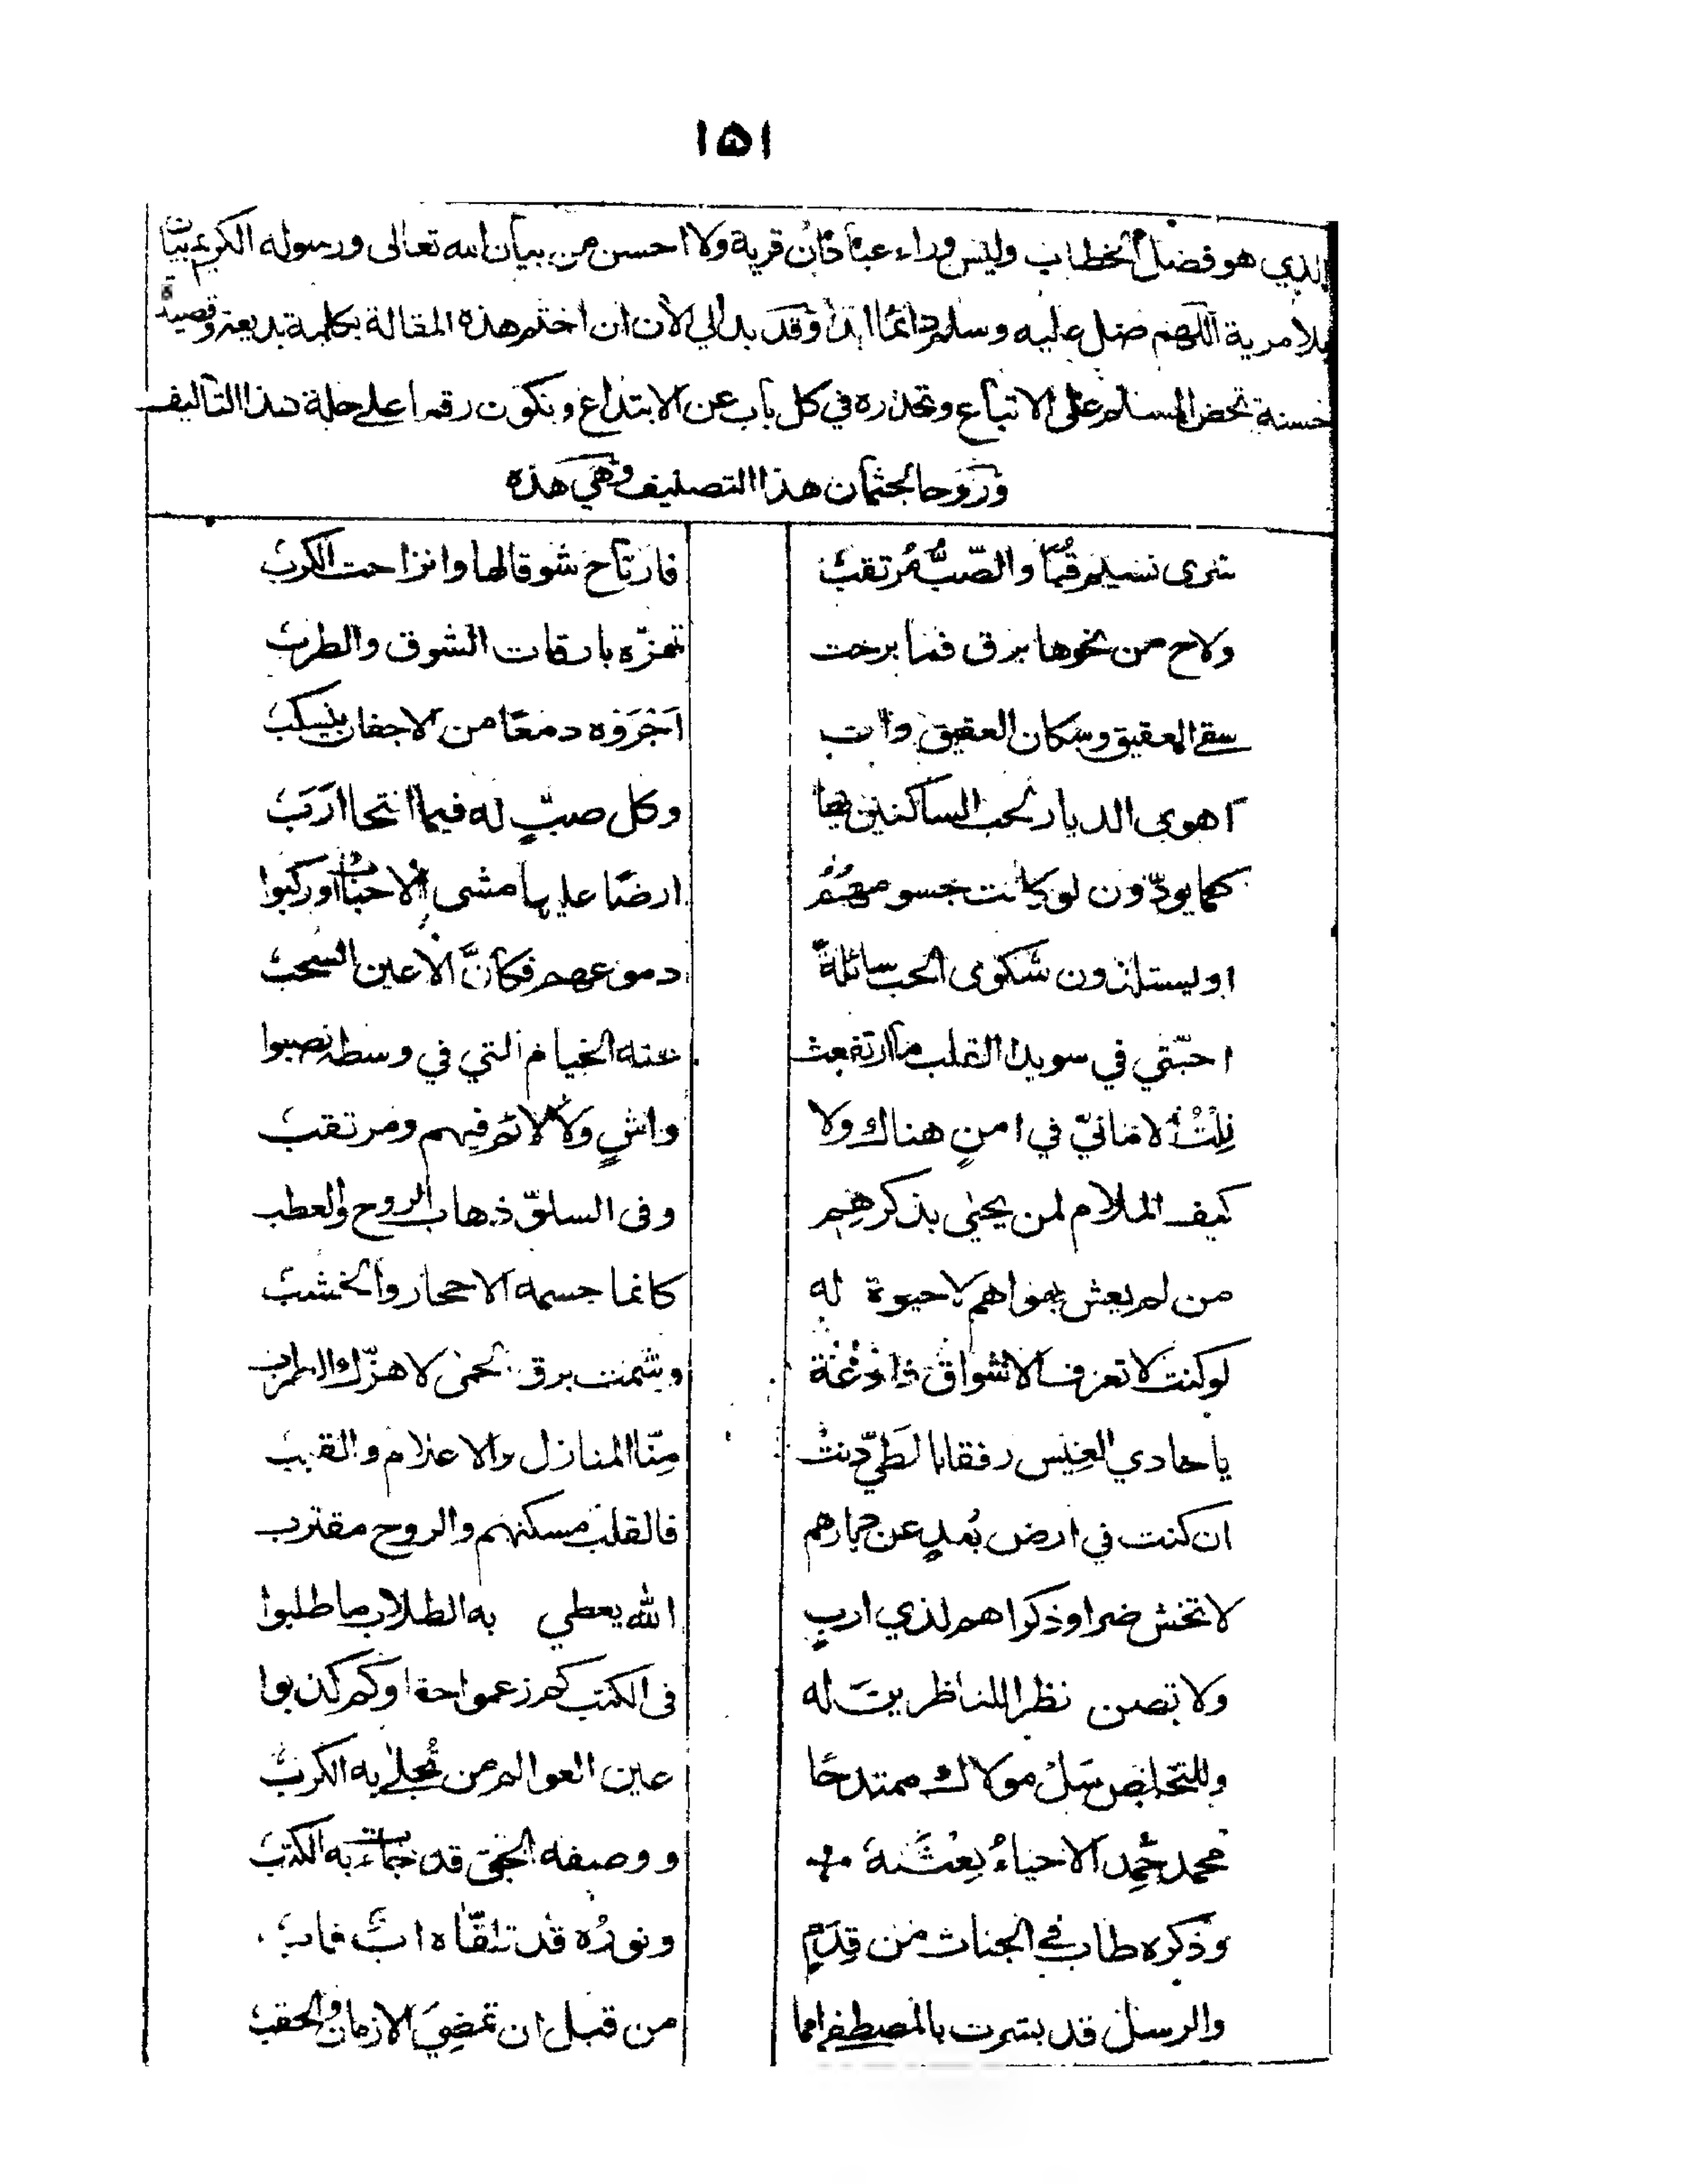 ١٥١
الذي هو فصل الخطاب وليس وراء عبادان قرية ولا احسن من بيان الله تعالى ورسوله الكريم بيان
بلا مرية اللهم صل عليه وسلم دائما ابدا وقد بدا لي الآن ان اختم هذه المقالة بكلمة بديعة وقصيدة
حسنة تحض المسلم على الاتباع وتحذره في كل باب عن الابتداع ويكون رقما على حلة هذا التأليف
وروحا لجثمان هذا التصنيف وهي هذه
سرى نسيم قُبًا والصّبُّ مُرتقبُ فارتاح شوقا لها وانزاحت الكربُ
ولاح من نحوها برق فما برحت تهزّه بارقات الشوق والطربُ
سقى العقيق وسكان العقيق وان اجروه دمعًا من الاجفان ينسكبُ
اهوى الديار لحب الساكنين بها وكل صبٍّ له فيما انتحا اربُ
كما يودّون لو كانت جسومهمُ ارضًا عليها مشى الاحباب او ركبوا
او يستلذون شكوى الحب سائلةً دموعهم فكانَّ الاعين السحبُ
احبّتي في سويدا القلب ما ارتفعت عنه الخيام التي في وسطه نصبوا
نِلْتُ الامانيّ في امنٍ هناك ولا واشٍ ولا لائم فيهم ومرتقبُ
كيف الملام لمن يحيى بذكرهِم وفى السلوّ ذهاب الروح والعطب
من لم يعش بهواهم لا حيوة له كانما جسمه الاحجار والخشبُ
لو كنت لا تعرف الاشواق ذا وشمت برق الحمى لا هزّك الطرب
يا حادي العيس رفقا بالمطيّ دنتْ مِنّا المنازل والاعلام والقببُ
ان كنت في ارض بُعدٍ عن ديارهم فالقلب مسكنهم والروح مقترب
لا تخش ضرا وذكراهم لذي اربٍ الله يعطي به الطلاب ما طلبوا
ولا تصن نظرا للناظرين له فى الكتب كم زعموا حقا وكم كذبوا
وللتخليص سَلْ مولاك ممتدحًا عين العوالم من تُجلى به الكربُ
محمد الاحياءُ بعثته ووصفه الحق قد جاءت به الكتبُ
وذكره طاب في الجنات من قِدَمٍ ونورُه قد تلقّاه ابٌ فابُ
والرسل قد بشرت بالمصطفى امما من قبل ان تمضِيَ الازمان والحقبُ